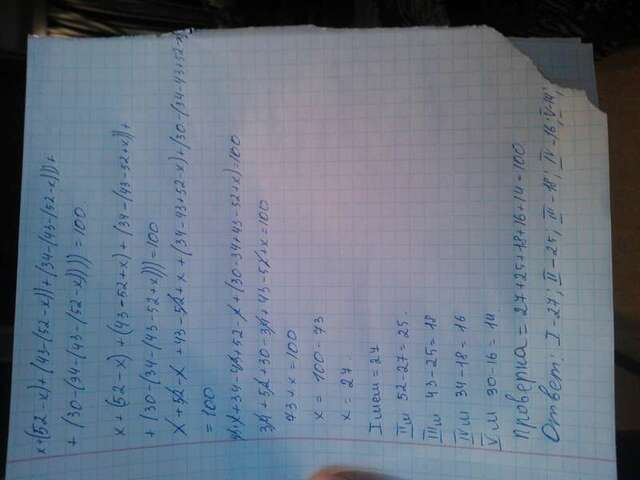 x+(52-x)+(43-(52-x))+(34-(43-(52-x)))+
+(30-(34-(43-(52-x))))=100
x+(52-x)+(43-52+x)+(34-(43-52+x))+
+(30-(34-(43-52+x)))=100
x+52-x+43-52+x+(34-43+52-x)+(30-(34-43+52-x
=100
43+x+34-43+52-x+(30-34+43-52+x)=100
34+52+30-34+43-52+x=100
73+x=100
x=100-73
x=27.
I мет=27
II м 52-27=25.
III м 43-25=18
IV м 34-18=16
V м 30-16=14
Проверка=27+25+18+16+14=100.
Ответ: I-27; II-25; III-18; IV-16; V-14;